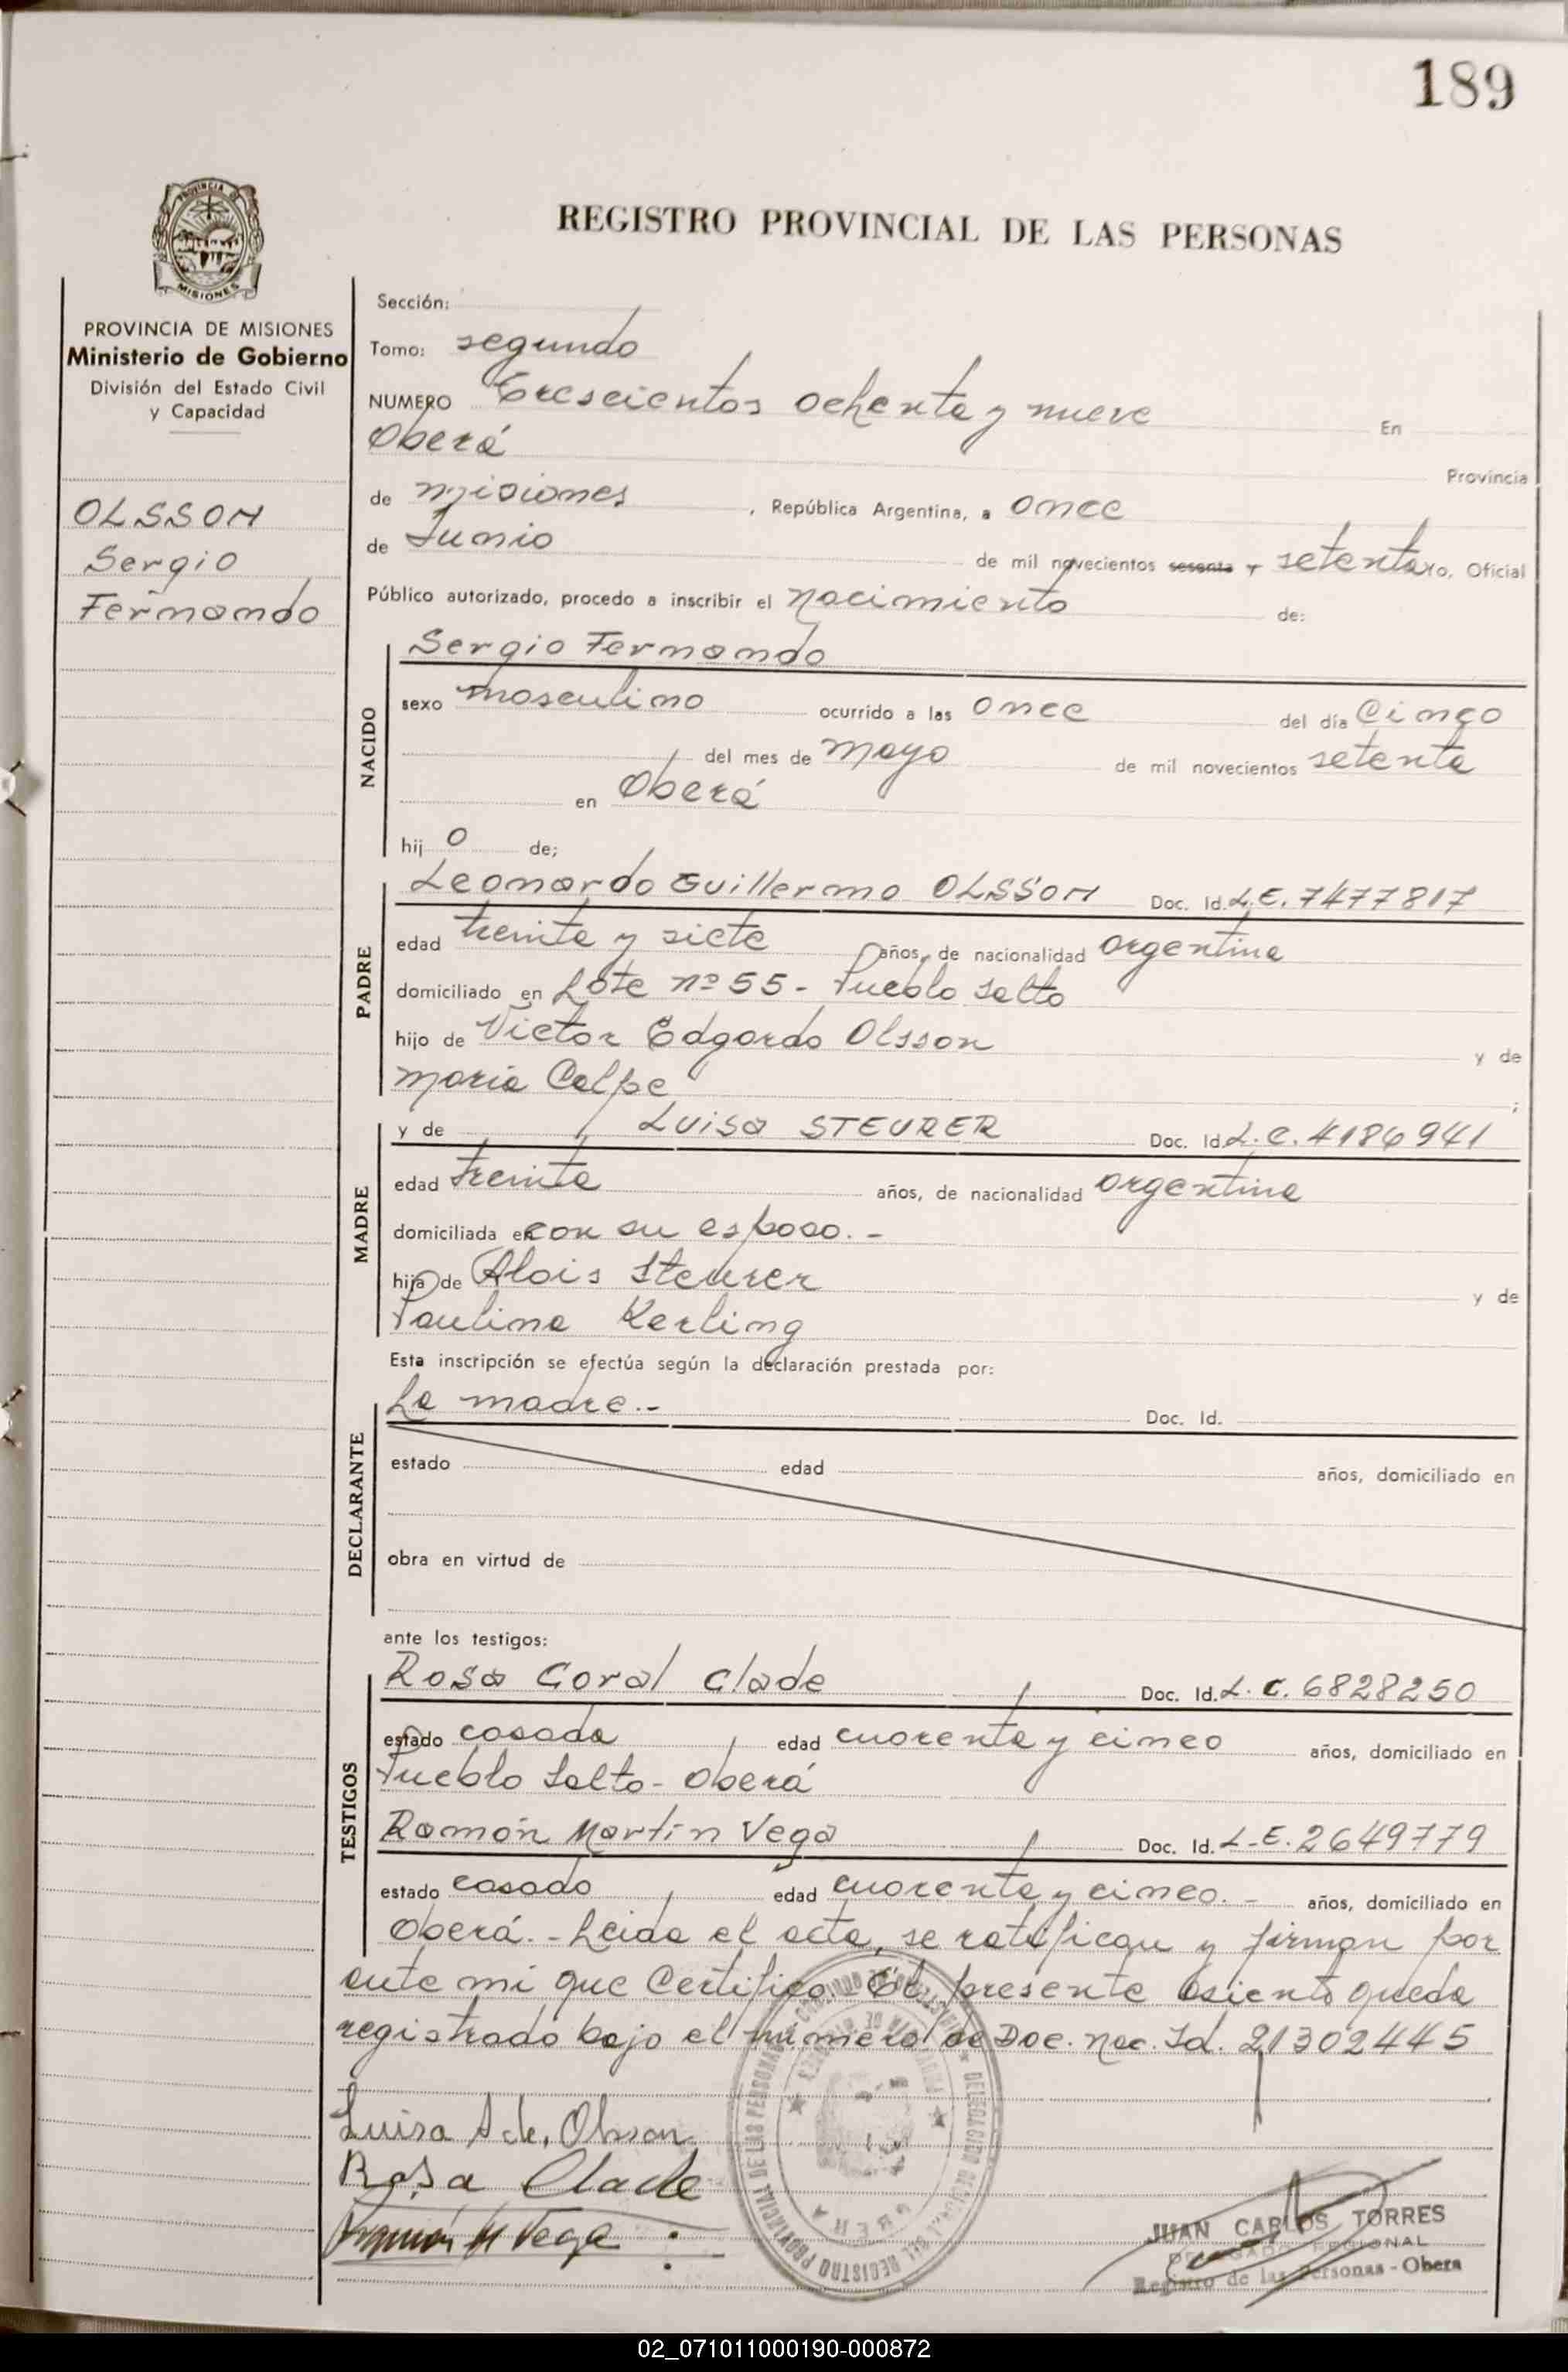 189
REGISTRO PROVINCIAL DE LAS PERSONAS
PROVINCIA DE
MISIONES
PROVINCIA DE MISIONES
Ministerio de Gobierno
División del Estado Civil
y Capacidad
OLSSON
Sergio
Fernando
Sección:
Tomo: segundo
NUMERO Trescientos ochenta y nueve En
Oberá Provincia
de misiones, República Argentina, a once
de Junio de mil novecientos sesenta y setenta yo, Oficial
Público autorizado, procedo a inscribir el nacimiento de:
NACIDO
Sergio Fernando
sexo masculino ocurrido a las once del día cinco
del mes de mayo de mil novecientos setenta
en Oberá
hij o de;
PADRE
Leonardo Guillermo OLSSON Doc. Id. L.E. 7477817
edad treinta y siete años, de nacionalidad argentina
domiciliado en Lote nº 55 - Pueblo Salto
hijo de Victor Edgardo Olsson y de
Maria Calpe ;
MADRE
y de Luisa STEURER Doc. Id. L.C. 4186941
edad treinta años, de nacionalidad argentina
domiciliada en con su esposo. -
hija de Alois Steurer y de
Paulina Kerling
Esta inscripción se efectúa según la declaración prestada por:
DECLARANTE
La madre.- Doc. Id.
estado edad años, domiciliado en
obra en virtud de
ante los testigos:
TESTIGOS
Rosa Goral Glade Doc. Id. L.C. 6828250
estado casada, edad cuarenta y cinco años, domiciliado en
Pueblo Salto - Oberá
Ramón Martín Vega Doc. Id. L.E. 2649779
estado casado, edad cuarenta y cinco. - años, domiciliado en
Oberá. - Leida el acta, se ratifican y firman por
ante mi que Certifico. El presente asiento queda
registrado bajo el numero de Doc. Nac. Id. 21302445
Luisa S de, Olsson
Rosa Clade
Ramón M Vega
OBERA
JUAN CARLOS TORRES
DELEGADO REGIONAL
Registro de las Personas - Obera
02_071011000190-000872